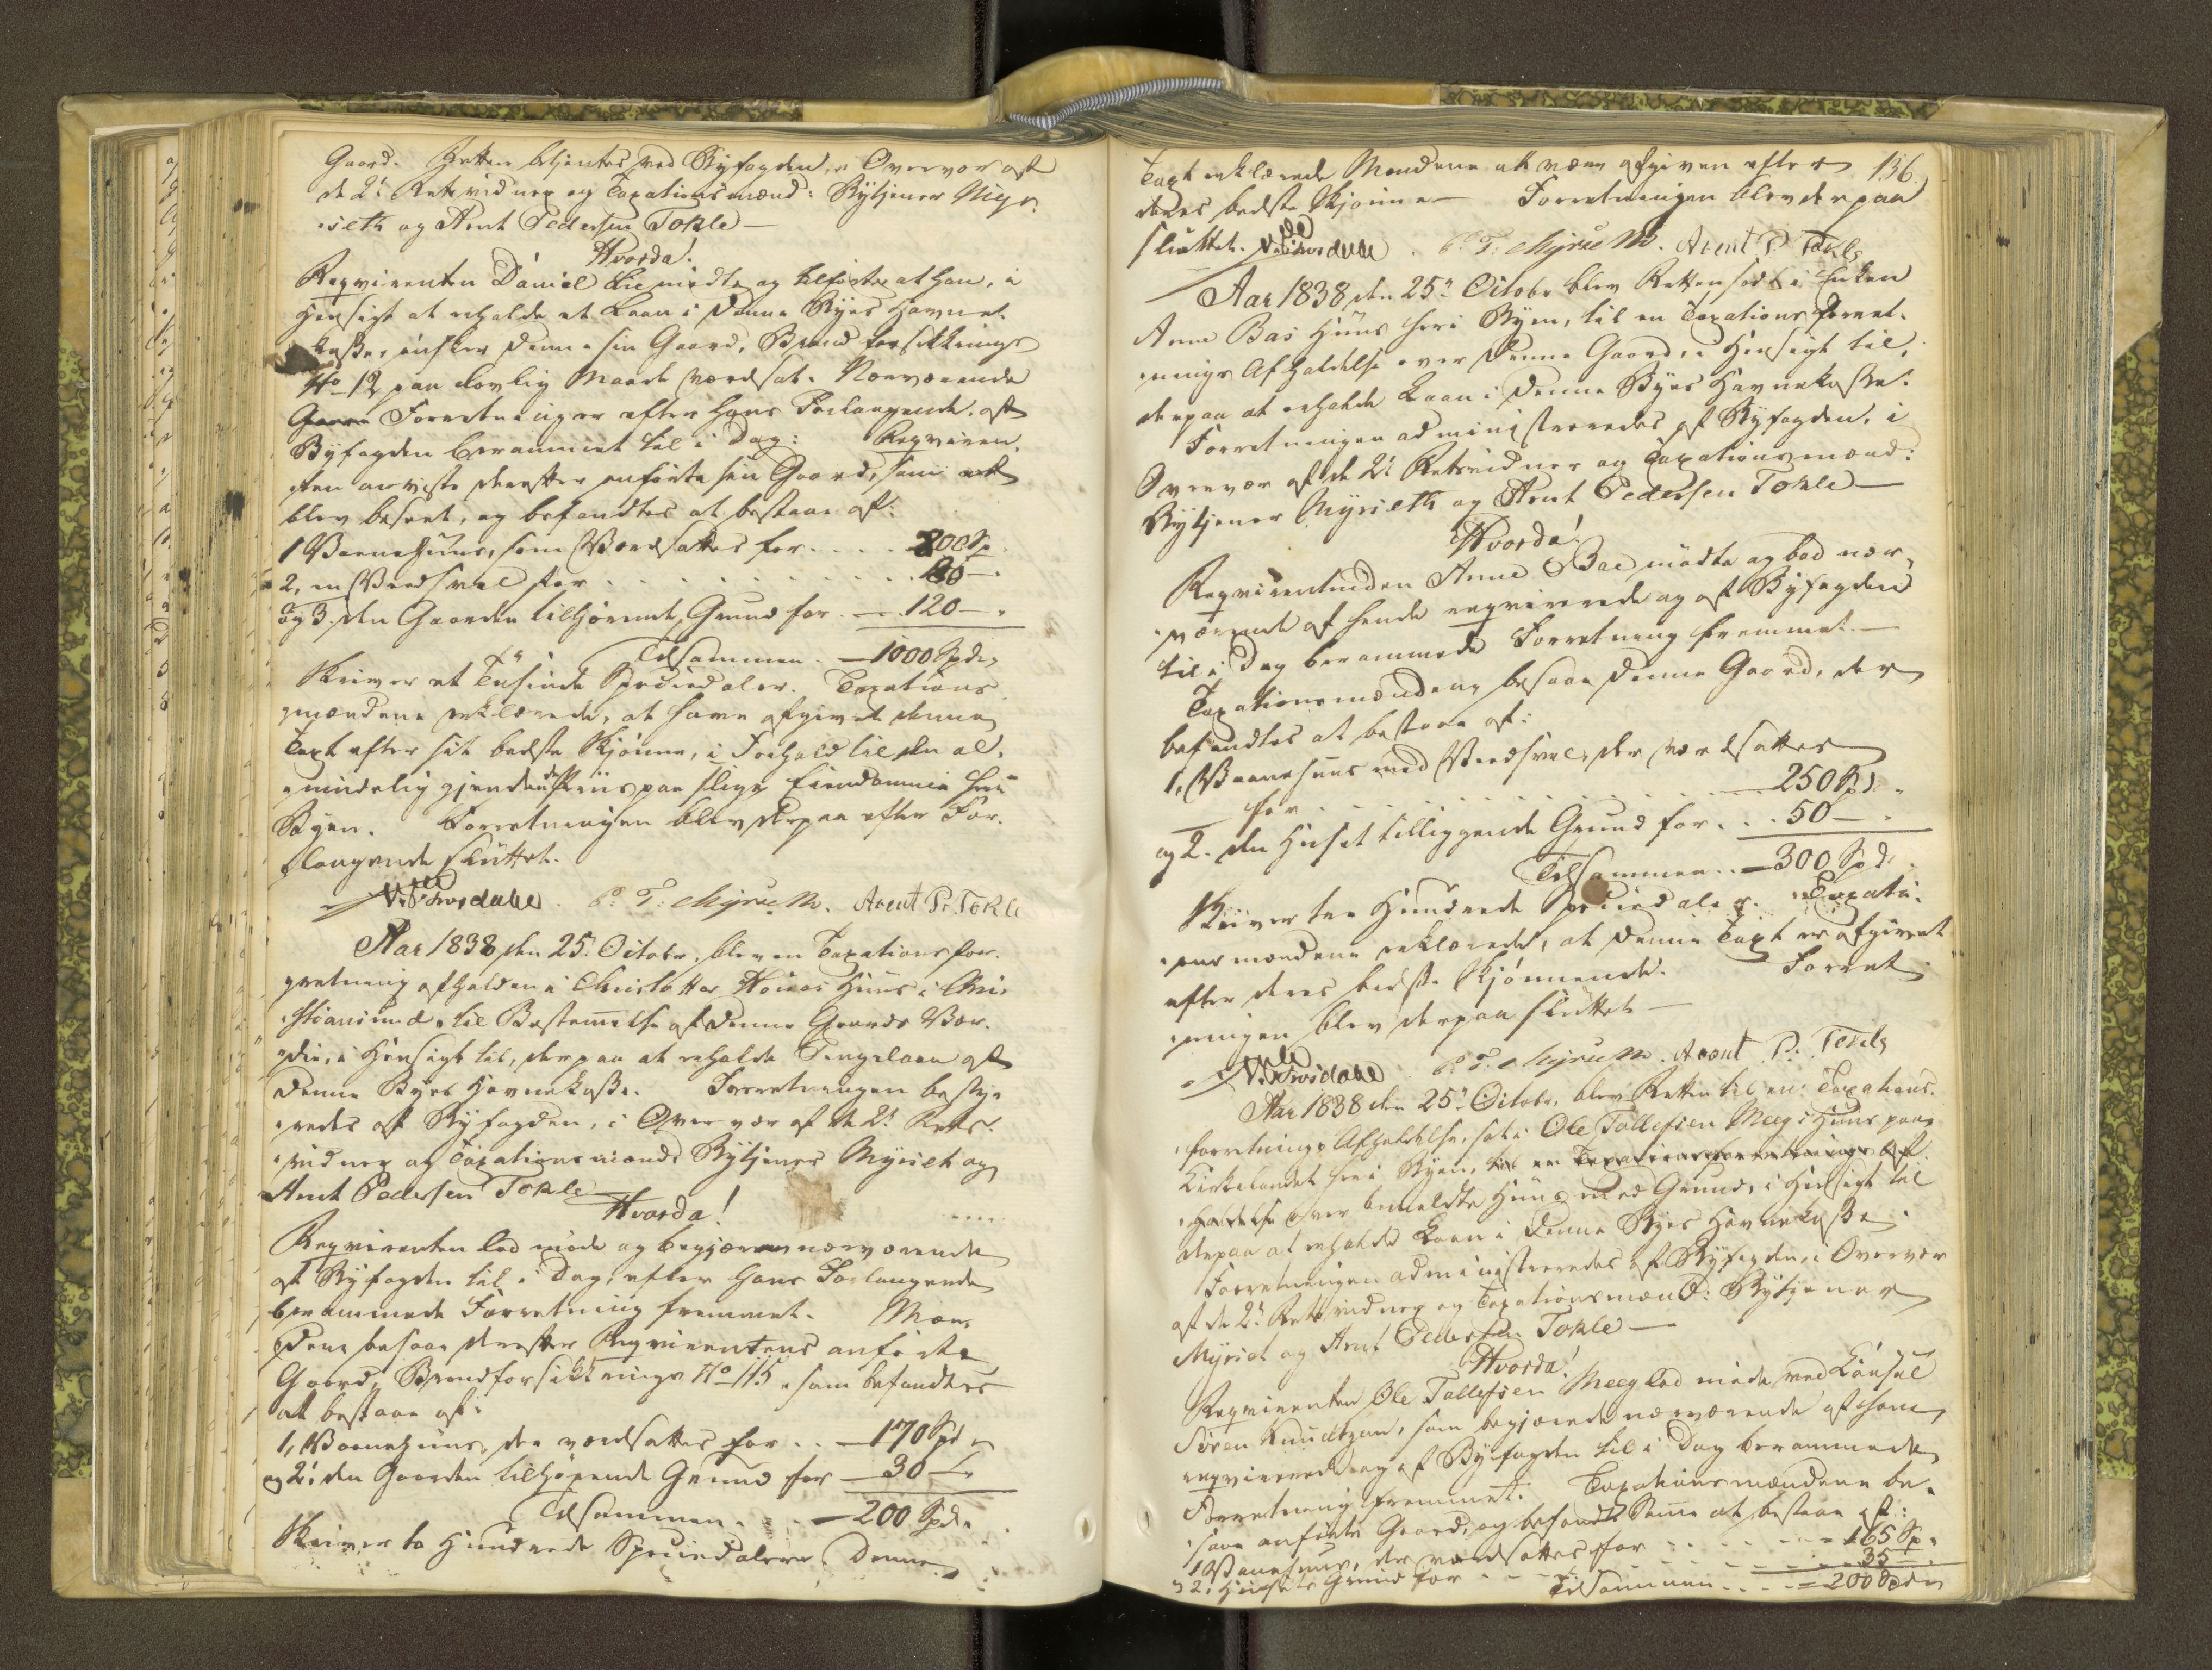 Gaard. Retten betjentes ved Byfogden, i Overvær af
de 2de Retsvidner og Taxationsmænd: Bytjener Myr-
seth og Arnt Pedersen Tokle —
Hvorda!
Reqvirenten Daniel Lie mødte og tilførte at han, i
Hensigt at erholde et Laan i denne Byes Havne-
kasse, ønsker denne sin Gaard, Brandforsikkrings
No 12 paa lovlig Maade værdsat. Nærværende
Forretning er efter hans Forlangende af
Byfogden berammet til i Dag: Reqviren-
ten anviste derefter anførte sin Gaard, som
blev beseet, og befandtes at bestaae af:
1 Vaanehuus, som Værdsattes for . . . . 800 Sp
2, en Vedsval for . . . . . 80 —
og 3. den Gaarden tilhørende Grund for — 120 —
Tilsammen — 1000 Spdr
Skriver et Tusinde Speciedaler. Taxations-
mændene erklærede, at have afgivet denne
Taxt efter sit bedste Skjønne, i Forhold til den al-
mindelig gjældende Priis paa slige Eiendomme her i
Byen. Forretningen blev derpaa efter For-
langende sluttet.
P. T. Myrseth. Arent P. Tokle
Aar 1838 den 25de Octobr. blev en Taxationsfor-
retning afholden i Huus i Chri-
stiansund, til Bestemmelse af denne Gaards Vær-
die, i Hensigt til, derpaa at erholde Pengelaan af
denne Byes Havnekasse. Forretningen besty-
redes af Byfogden, i Overvær af de 2de Rets-
vidner og Taxationsmænd Bytjener Myrset og
Arnt Pedersen Tokle —
Hvorda!
Reqvirenten lod møde og begjære nærværende
af Byfogden til i Dag, efter hans Forlangende
berammede Forretning fremmet. Mæn-
dene besaae derefter Reqvirentens anførte
Gaard, Brandforsikkrings No 115, som befandtes
at bestaae af:
1, Vaanehuus, der værdsattes for . . — 170 Spd
og 2: den Gaarden tilhørende Grund for — 30 —
Tilsammen . . — 200 Spd.
Skriver to Hundrede Speciedaler. Denne
Taxt erklærede Mændene at være afgiven efter 136.
deres bedste Skjønne — Forretningen blev derpaa
sluttet. P. T. Myrseth. Arent P. Tokle
Aar 1838 den 25de Octobr blev Retten sat i Enken
Anne Baes Huus her i Byen, til en Taxations Forret-
nings Afholdelse over denne Gaard, i Hensigt til,
derpaa at erholde Laan i denne Byes Havnekasse.
Forretningen administreredes af Byfogden, i
Overvær af de 2de Retsvidner og Taxationsmænd:
Bytjener Myrseth og Arnt Pedersen Tokle —
Hvorda!
Reqvirentinden Anne Bae mødte og bad nær-
værende af hende reqvirerede og af Byfogden
til i Dag berammede Forretning fremmet. —
Taxationsmændene besaae denne Gaard, der
befandtes at bestaae af:
1, Vaanehuus med Vedsval, der værdsattes
for . . . . . . 250 Spd.
og 2. den Huset tilliggende Grund for . . 50 —
Tilsammen . . — 300 Spd.
Skriver tre Hundrede Speciedaler. Taxati-
onsmændene erklærede, at denne Taxt er afgivet
efter deres bedste Skjønnende. Forret-
ningen blev derpaa sluttet —
P. T. Myrseth. Arent P. Tokle
Aar 1838 den 25de Octobr. blev Retten til en Taxations-
forretnings Afholdelse, sat i Ole Tollefsen Meegs Huus paa
Kirkelandet her i Byen, til en Taxationsforretnings Af-
holdelse over bemeldte Huus med Grund, i Hensigt til
derpaa at erholde Laan i denne Byes Havnekasse.
Forretningen administreredes af Byfogden, i Overvær
af de 2de Retsvidner og Taxationsmænd: Bytjener
Myrset og Arnt Pedersen Tokle —
Hvorda!
Reqvirenten Ole Tollefsen Meeg lod møde ved Consul
Søren Knudtzon, som begjærede nærværende af ham
reqvirerede og af Byfogden til i Dag berammede
Forretning fremmet. Taxationsmændene be-
saae anførte Gaard, og befandt Samme at bestaae af:
1 Vaanehuus, der værdsattes for . . . . 165 Sp.
2: Husets Grund for . . . . 35
Tilsammen . . . . 200 Spd